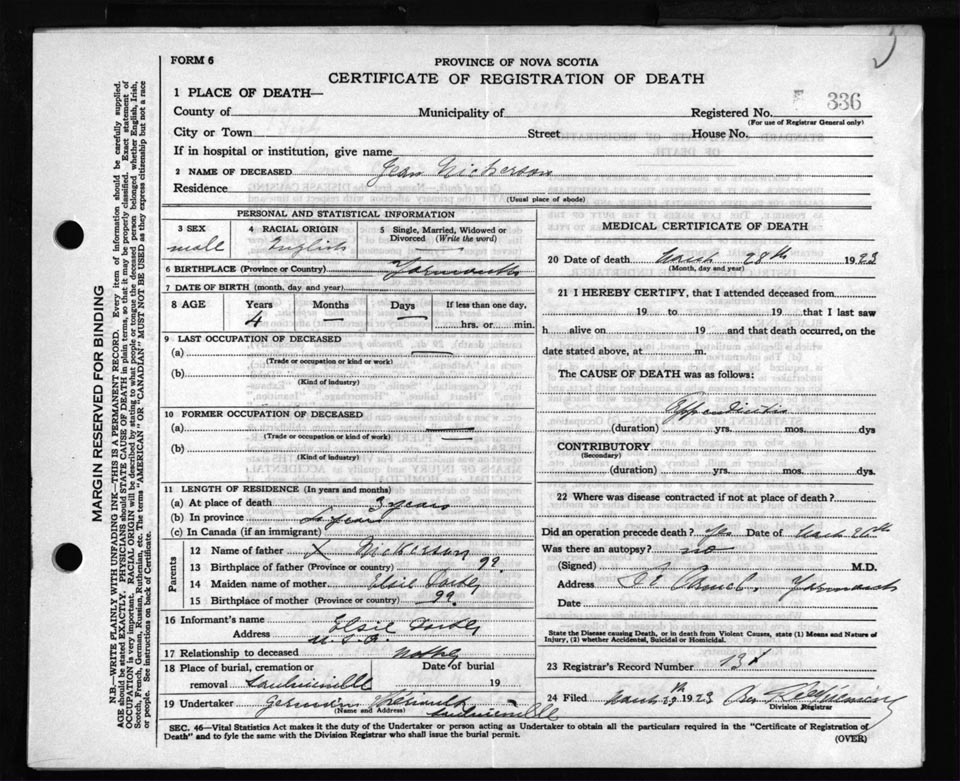 FORM 6
PROVINCE OF NOVA SCOTIA
CERTIFICATE OF REGISTRATION OF DEATH
1 PLACE OF DEATH—
County of Municipality of Registered No. 336
(For use of Registrar General only)
City or Town Street House No.
If in hospital or institution, give name
2 NAME OF DECEASED Jean Nickerson
Residence
(Usual place of abode)
PERSONAL AND STATISTICAL INFORMATION
3 SEX 4 RACIAL ORIGIN 5 Single, Married, Widowed or Divorced (Write the word)
male English —
6 BIRTHPLACE (Province or Country) Yarmouth
7 DATE OF BIRTH (month, day and year)
8 AGE Years Months Days If less than one day,
4 — — hrs. or min.
9 LAST OCCUPATION OF DECEASED
(a) —
(Trade or occupation or kind or work)
(b)
(Kind of industry)
10 FORMER OCCUPATION OF DECEASED
(a) —
(Trade or occupation or kind of work) —
(b)
(Kind of industry)
11 LENGTH OF RESIDENCE (In years and months)
(a) At place of death 3 years
(b) In province years
(c) In Canada (if an immigrant)
Parents
12 Name of father X Nickerson
13 Birthplace of father (Province or country) ??
14 Maiden name of mother Elsie
15 Birthplace of mother (Province or country) ??
16 Informant's name Elsie
Address U.S.A.
17 Relationship to deceased Mother
18 Place of burial, cremation or Date of burial
removal Saulnierville 19
19 Undertaker Germain
(Name and Address) Saulnierville
MEDICAL CERTIFICATE OF DEATH
20 Date of death March 28th 1923
(Month, day and year)
21 I HEREBY CERTIFY, that I attended deceased from
19 to 19 that I last saw
h alive on 19 and that death occurred, on the
date stated above, at m.
The CAUSE OF DEATH was as follows:
Appendicitis
(duration) yrs. mos. dys
CONTRIBUTORY
(Secondary)
(duration) yrs. mos. dys.
22 Where was disease contracted if not at place of death?
Did an operation precede death? Yes Date of March 20th
Was there an autopsy? no
(Signed) M.D.
Address Yarmouth
Date
State the Disease causing Death, or in death from Violent Causes, state (1) Means and Nature of
Injury, (2) whether Accidental, Suicidal or Homicidal.
23 Registrar's Record Number
24 Filed March 1923
Division Registrar
SEC. 46—Vital Statistics Act makes it the duty of the Undertaker or person acting as Undertaker to obtain all the particulars required in the "Certificate of Registration of
Death" and to fyle the same with the Division Registrar who shall issue the burial permit.
(OVER)
MARGIN RESERVED FOR BINDING
N.B.—WRITE PLAINLY WITH UNFADING INK—THIS IS A PERMANENT RECORD. Every item of information should be carefully supplied.
AGE should be stated EXACTLY. PHYSICIANS should STATE CAUSE OF DEATH in plain terms, so that it may be properly classified. Exact statement of
OCCUPATION is very important. RACIAL ORIGIN will be described by stating to what people or tongue the deceased person belonged whether English, Irish,
Scotch, French, German, Russian, Ruthenian, etc. The terms "AMERICAN" OR "CANADIAN" MUST NOT BE USED as they express citizenship but not a race
or people. See instructions on back of Certificate.